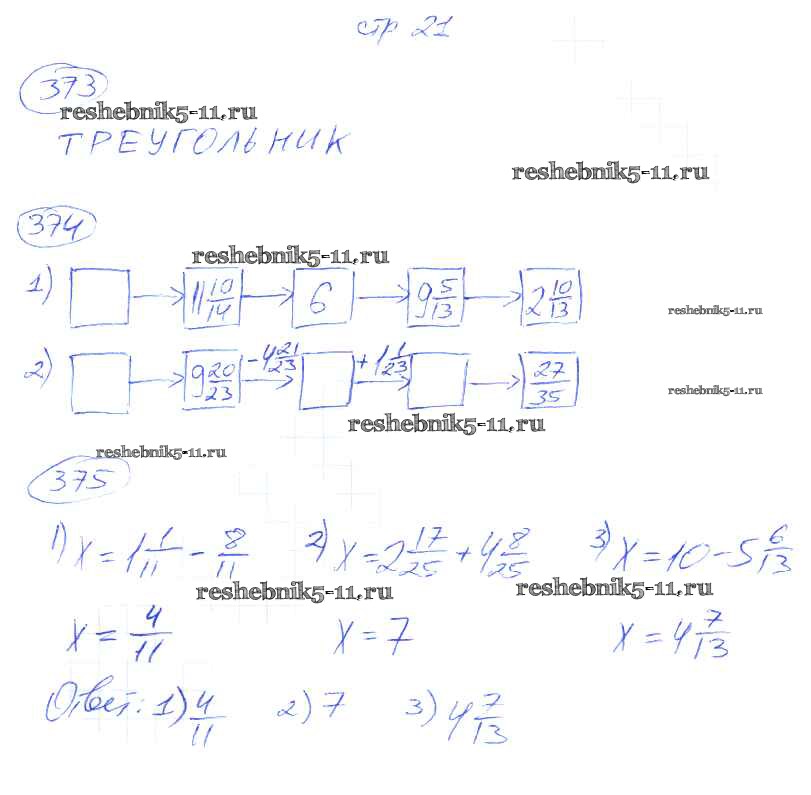 стр 21
373
reshebnik5-11.ru
ТРЕУГОЛЬНИК
reshebnik5-11.ru
374
reshebnik5-11.ru
1) → 11 10/14 → 6 → 9 5/13 → 2 10/13
reshebnik5-11.ru
2) → 9 20/23 - 4 21/23 → + 1 1/23 → → 27/35
reshebnik5-11.ru
reshebnik5-11.ru
reshebnik5-11.ru
375
1) x = 1 1/11 - 8/11 2) x = 2 17/25 + 4 8/25 3) x = 10 - 5 6/13
reshebnik5-11.ru reshebnik5-11.ru
x = 4/11 x = 7 x = 4 7/13
Ответ: 1) 4/11 2) 7 3) 4 7/13